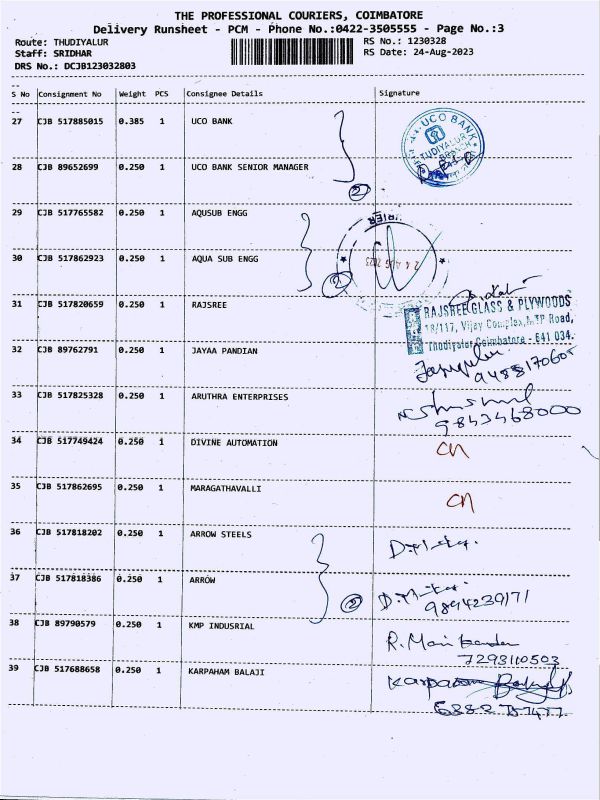 THE PROFESSIONAL COURIERS, COIMBATORE
Delivery Runsheet - PCM - Phone No.:0422-3505555 - Page No.:3
Route: THUDIYALUR RS No.: 1230328
Staff: SRIDHAR RS Date: 24-Aug-2023
DRS No.: DCJB123032803
S No Consignment No Weight PCS Consignee Details Signature
27 CJB 517885015 0.385 1 UCO BANK
UCO BANK
THUDIYALUR
BRANCH
28 CJB 89652699 0.250 1 UCO BANK SENIOR MANAGER
2
29 CJB 517765582 0.250 1 AQUSUB ENGG
30 CJB 517862923 0.250 1 AQUA SUB ENGG
24 AUG 2023
2
31 CJB 517820659 0.250 1 RAJSREE
RAJSREE GLASS & PLYWOODS
18/117, Vijay Complex, M.TP Road,
Thudiyalur Coimbatore - 641 034.
32 CJB 89762791 0.250 1 JAYAA PANDIAN
9488170605
33 CJB 517825328 0.250 1 ARUTHRA ENTERPRISES
9843468000
34 CJB 517749424 0.250 1 DIVINE AUTOMATION
CN
35 CJB 517862695 0.250 1 MARAGATHAVALLI
CN
36 CJB 517818202 0.250 1 ARROW STEELS
37 CJB 517818386 0.250 1 ARROW
2
9894239171
38 CJB 89790579 0.250 1 KMP INDUSRIAL
R. Mani
7293110503
39 CJB 517688658 0.250 1 KARPAHAM BALAJI